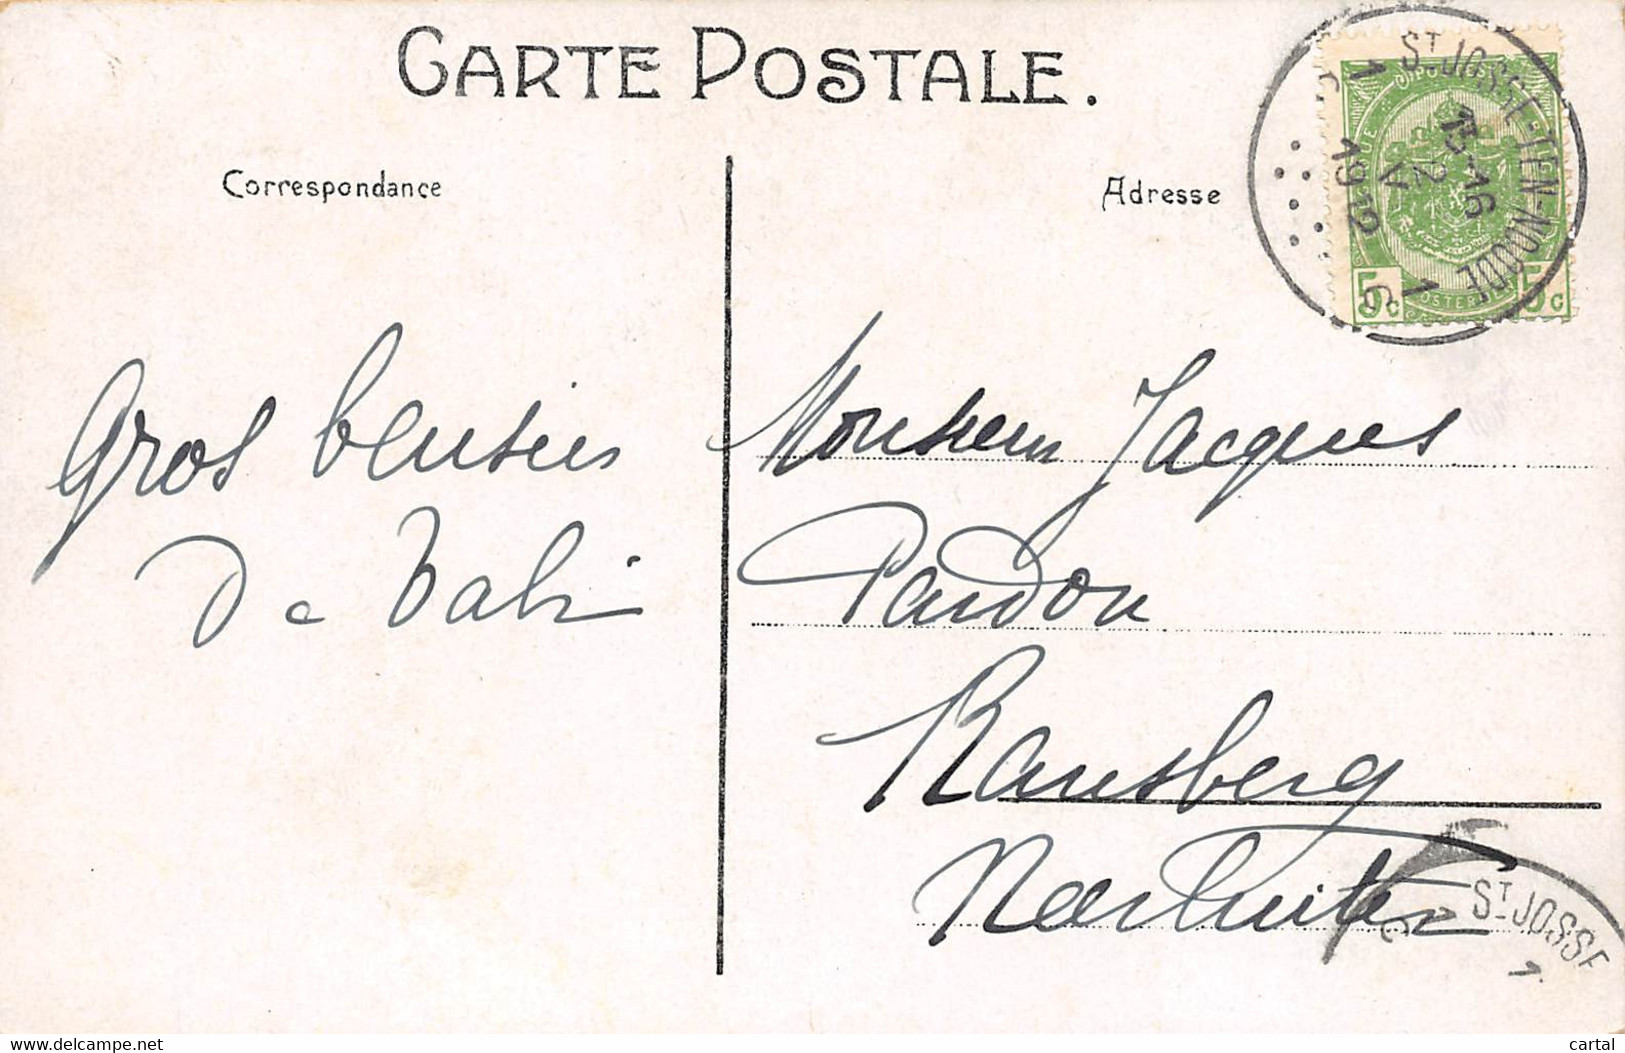 CARTE POSTALE.
Correspondance
Adresse
ST JOSSE-TEN-NOODE
1 1
15-16
2
V
1912
5c 5c
Gros baisers
De
Monsieur Jacques
Pardon
Ransberg
Neerlinter
ST JOSSE
1
www.delcampe.net
cartal